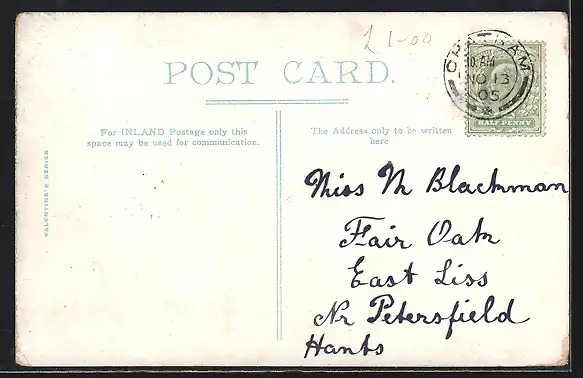 £ 1-00
POST CARD.
CHATHAM
10 AM
NO 13
05
HALF PENNY
For INLAND Postage only this
space may be used for communication.
The Address only to be written
here
VALENTINE'S SERIES
Miss M Blackman
Fair Oak
East Liss
Nr Petersfield
Hants